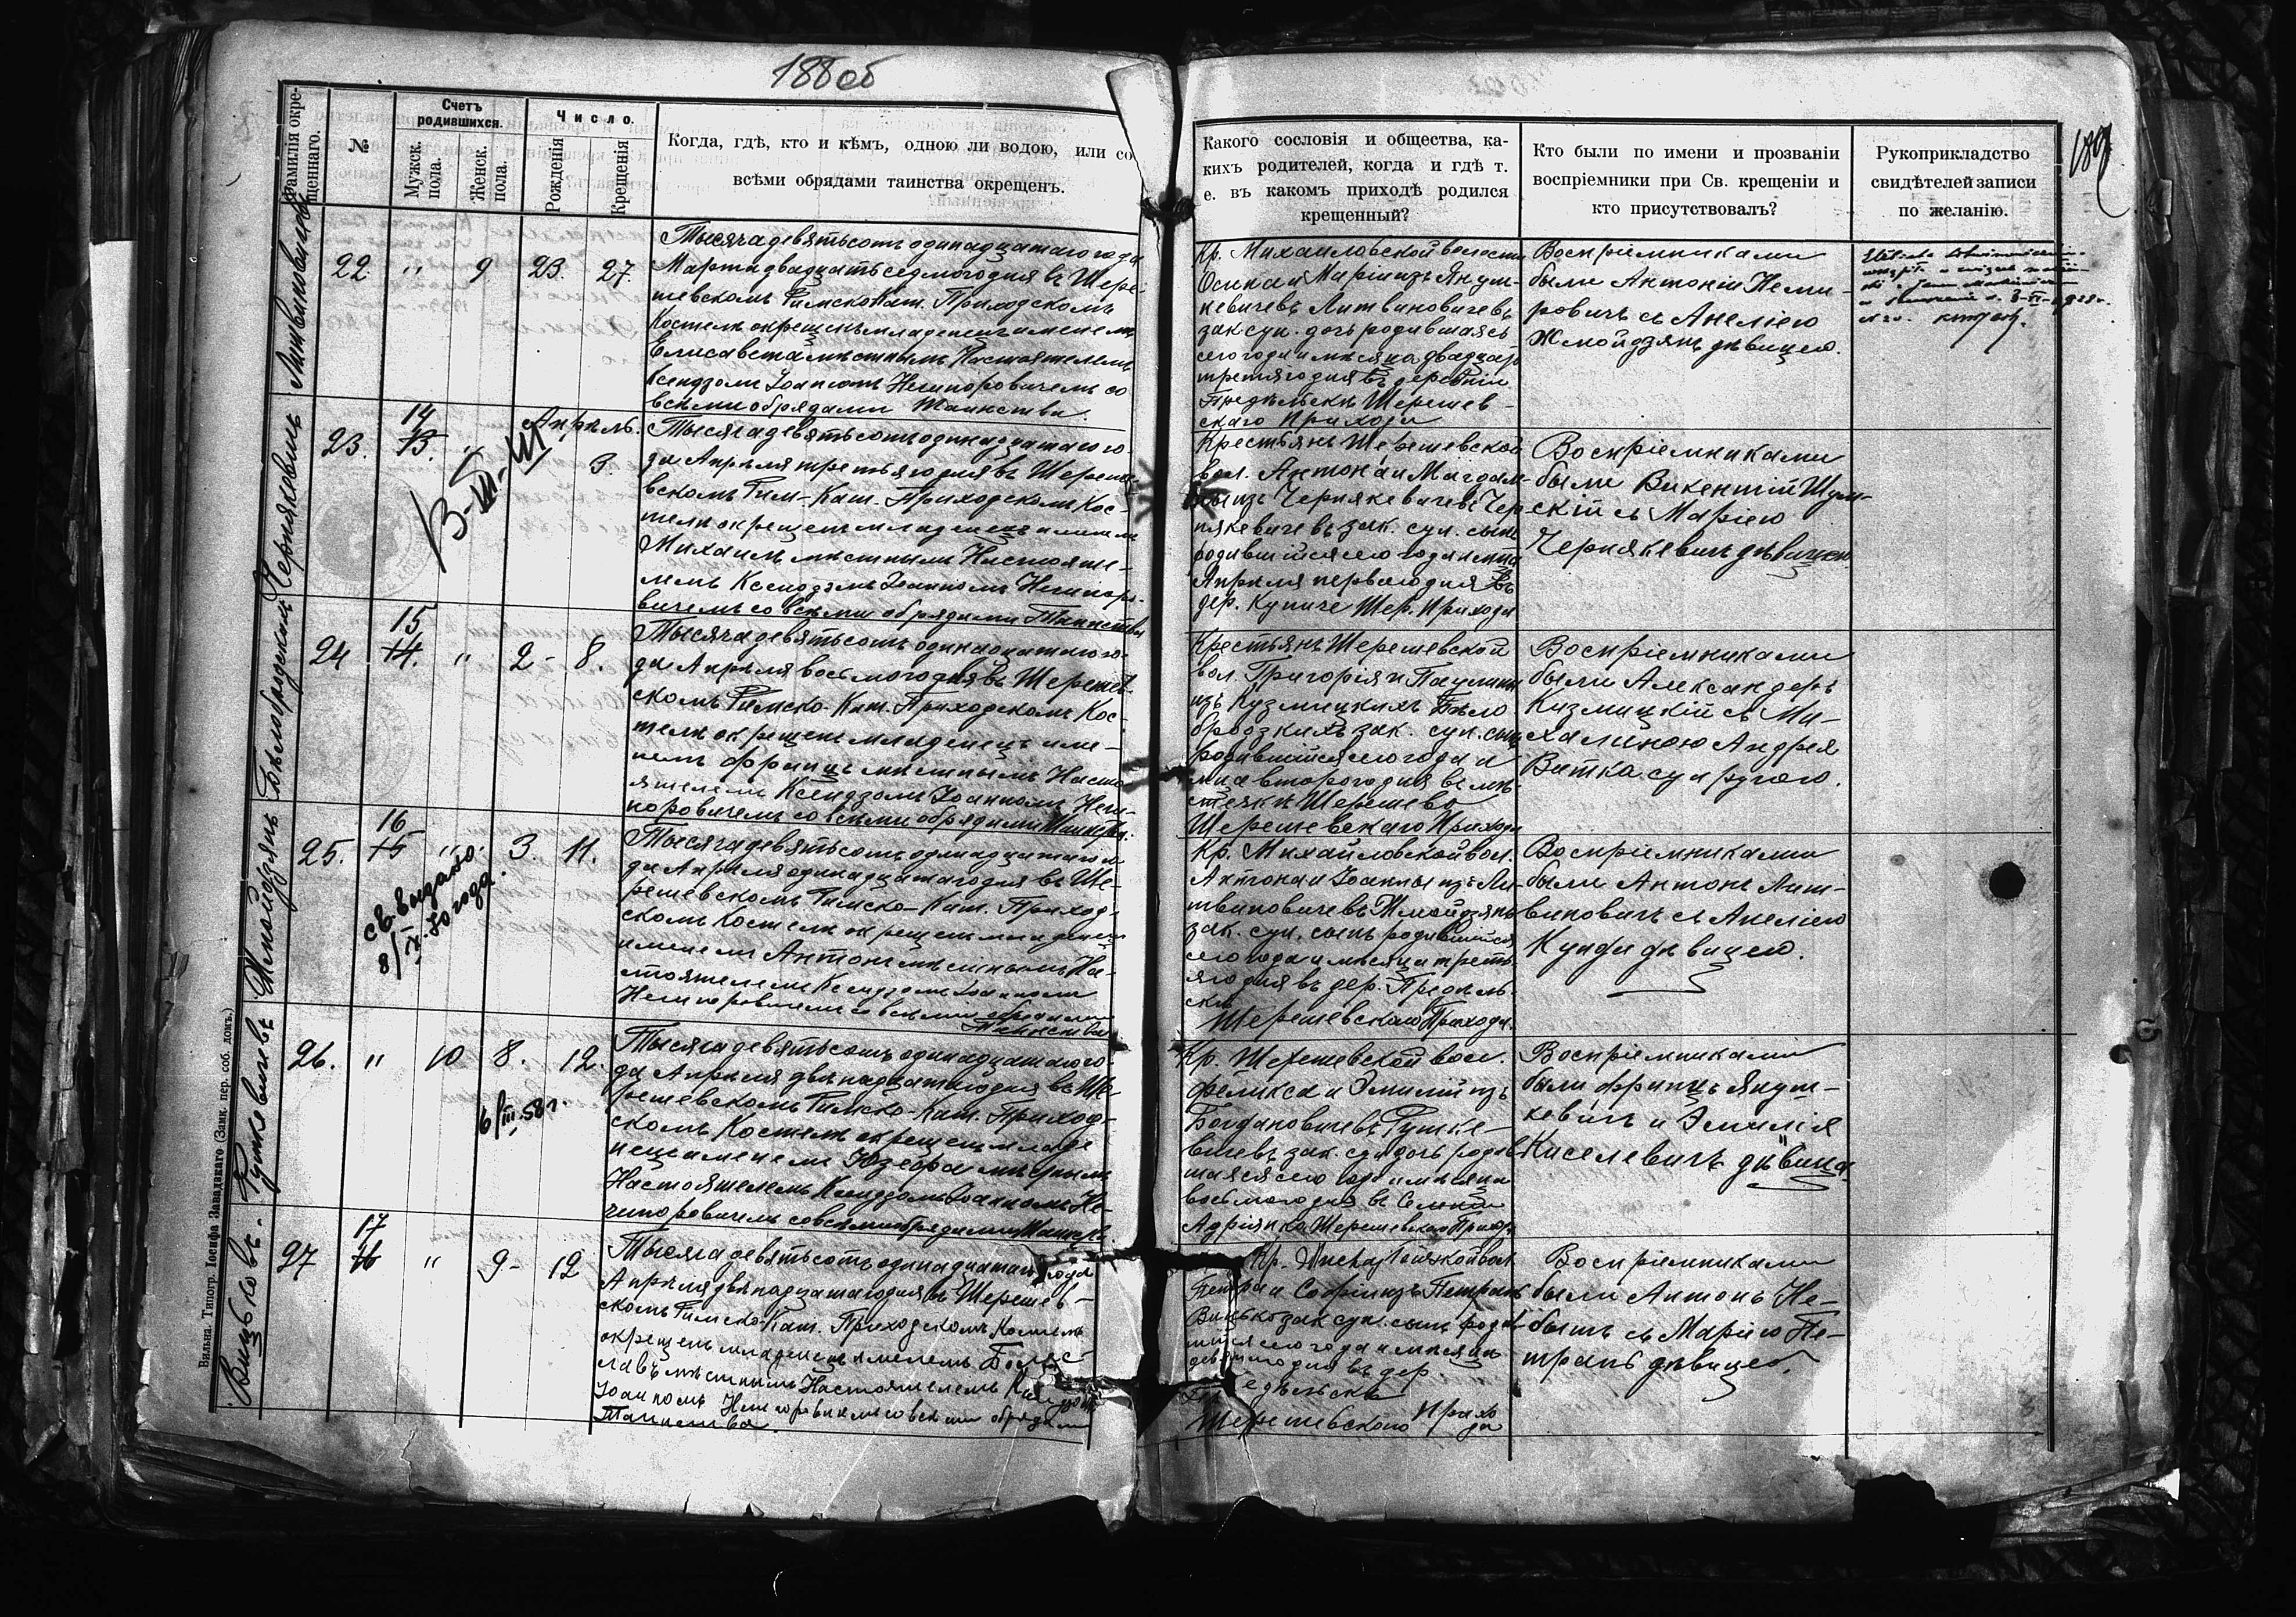 188об
Фамилія окре-
щеннаго.
№
Счетъ
родившихся.
Мужск.
пола.
Женск.
пола.
Число.
Рожденія
Крещенія
Когда, гдѣ, кто и кѣмъ, одною ли водою, или со
всѣми обрядами таинства окрещенъ.
Литвиновичъ
22 " 9 23. 27.
Тысяча девятьсотъ одинадцатаго года
Марта двадцать седмого дня въ Шере-
шевскомъ Римско Кат. Приходскомъ
Костелѣ окрещенъ младенецъ именемъ
Елисавета мѣстнымъ Настоятелемъ
Ксендзомъ Іоанномъ Нечипоровичемъ со
всѣми обрядами Таинства.
Чернякевичъ
23. 14 13. "
Апрѣль.
3.
13-III-III
Тысяча девятьсотъ одинадцатаго го-
да Апрѣля третьяго дня въ Шереше-
вскомъ Рим-Кат. Приходскомъ Кос-
телѣ окрещенъ младенецъ именемъ
Михаилъ мѣстнымъ Настояте-
лемъ Ксендзомъ Іоанномъ Нечипоро-
вичемъ со всѣми обрядами Таинства
Бѣлобродзскій
24 15 14. " 2- 8.
Тысяча девятьсотъ одинадцатаго го-
да Апрѣля восьмого дня въ Шерешев-
скомъ Римско-Кат. Приходскомъ Кос-
телѣ окрещенъ младенецъ име-
немъ Францъ мѣстнымъ Насто-
ятелемъ Ксендзомъ Іоанномъ Нечи-
поровичемъ со всѣми обрядами Таинства.
Жмойдзянъ
25. 16 15 " 3. 11.
св. выдано.
8/IX.30 года.
Тысяча девятьсотъ одинадцатаго го-
да Апрѣля одинадцатаго дня въ Ше-
решевскомъ Римско-Кат. Приход-
скомъ Костелѣ окрещенъ младенецъ
именемъ Антонъ мѣстнымъ На-
стоятелемъ Ксендзомъ Іоанномъ
Нечипоровичемъ со всѣми обрядами
Таинства
Руткевичевъ
26. " 10 8. 12.
6/III.58г.
Тысяча девятьсотъ одинадцатаго го-
да Апрѣля двѣнадцатаго дня въ Ше-
решевскомъ Римско-Кат. Приход-
скомъ Костелѣ окрещенъ младе-
нецъ именемъ Юзефа мѣстнымъ
Настоятелемъ Ксендзомъ Іоанномъ Не-
чипоровичемъ со всѣми обрядами Таинства
Вицьковъ.
27 17 16 " 9- 12
Тысяча девятьсотъ одинадцатаго года
Апрѣля двѣнадцатаго дня въ Шерешев-
скомъ Римско-Кат. Приходскомъ Костелѣ
окрещенъ младенецъ именемъ Болес-
лавъ мѣстнымъ Настоятелемъ Ксендзомъ
Іоанномъ Нечипоровичемъ со всѣми обрядами
Таинства.
Вильна, Типогр. Іосифа Завадзкаго (Замк. пер. соб. домъ.)
189
Какого сословія и общества, ка-
кихъ родителей, когда и гдѣ т.
е. въ какомъ приходѣ родился
крещенный?
Кто были по имени и прозванію
воспріемники при Св. крещеніи и
кто присутствовалъ?
Рукоприкладство
свидѣтелей записи
по желанію.
Кр. Михаиловской волости
Осипа и Маріи изъ Януш-
кевичевъ Литвиновичевъ
зак суп. дочь родившаяся
сего года и мѣсяца двадцать
третяго дня въ деревни
Предѣльскъ Шерешев-
скаго Прихода
Воспріемниками
были Антоній Неми-
ровичъ съ Анеліею
Жмойдзянъ дѣвицею.
Крестьянъ Шерешевской
вол. Антона и Магдале-
ны изъ Чернякевичевъ Чер-
някевичевъ зак. суп. сынъ
родившійся сего года и м-ца
Апрѣля перваго дня въ
дер. Купиче Шер. Прихода
Воспріемниками
были Викентій Шум-
скій съ Маріею
Чернякевичъ дѣвицею
Крестьянъ Шерешевской
вол. Григорія и Паулины
изъ Кузмицкихъ Бѣло
бродзкихъ зак. суп. сынъ
родившійся сего года и
м-ца второго дня въ мѣ-
стечкѣ Шерешево
Шерешевскаго Прихода
Воспріемниками
были Александеръ
Казмицкій съ Ми-
халиною Андрея
Витка супругою.
Кр. Михайловской вол.
Антона и Іоанны изъ Ли-
твиновичевъ Жмойдзянъ
зак. суп. сынъ родившійся
сего года и мѣсяца треть-
яго дня въ дер. Предѣль-
скъ
Шерешевскаго Прихода.
Воспріемниками
были Антонъ Лит-
виновичъ съ Анеліею
Кунда дѣвицею.
Кр. Шерешевской вол.
Феликса и Эмиліи изъ
Богдановичевъ Рутке-
вичевъ зак. суп дочь родив-
шаяся сего года и мѣсяца
восьмого дня въ
Адріянка Шерешевскаго Прихода
Воспріемниками
были Францъ Януш-
кевичъ и Эмилія
Киселевичъ дѣвица
Кр. вол
Петра и Софіи изъ Петранъ
Вицько зак суп. сынъ родив-
шійся сего года и мѣсяца
девятого дня въ дер.
Предѣльскъ
Шерешевскаго Прихо
да
Воспріемниками
были Антонъ Не-
бытъ съ Маріею Пе-
транъ дѣвицею.